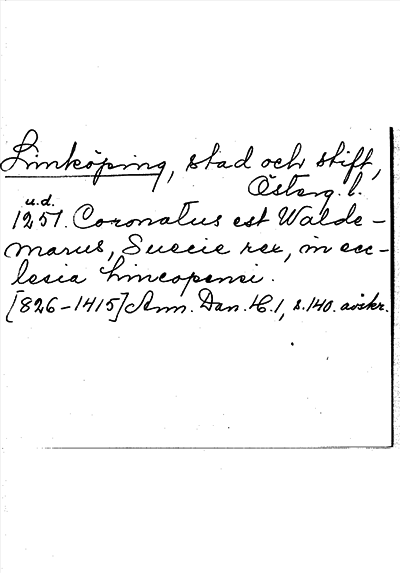 Linköping, stad och stift,
Österg. l.
u.d.
1251. Coronatus est Walde-
marus, Suecie rex, in ecc-
lesia Lincopensi.
[826-1415] Ann. Dan. H. 1, s. 140. avskr.